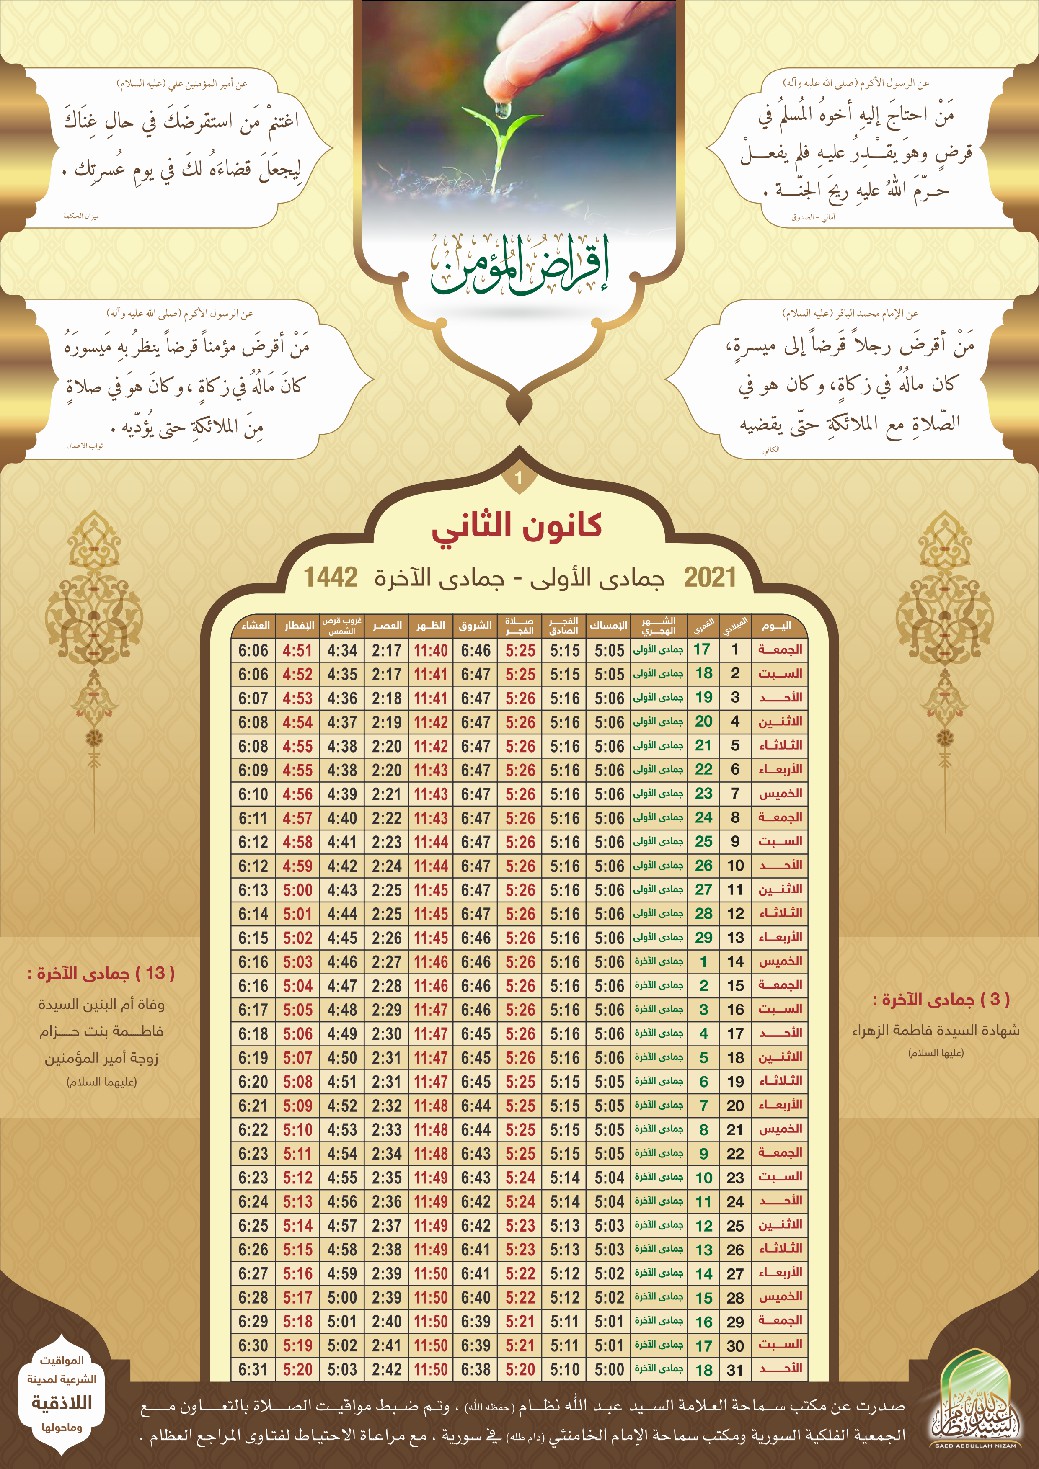 عن الرسول الأكرم (صلى الله عليه وآله)
مَنْ احتاجَ إليهِ أخوهُ المُسلمُ في
قرضٍ وهوَ يقـدِرُ عليهِ فلم يفعـلْ
حـرّمَ اللهُ عليهِ ريحَ الجنّـة .
أمالي - الصدوق
عن أمير المؤمنين علي (عليه السلام)
اغتنمْ مَن استقرضَكَ في حالِ غِنَاكَ
لِيجعَلَ قضاءَهُ لكَ في يومِ عُسرتِك .
ميزان الحكمة
إقراض المؤمن
عن الإمام محمد الباقر (عليه السلام)
مَنْ أقرضَ رجلاً قَرضاً إلى ميسرةٍ،
كان مالُهُ في زكاةٍ، وكان هو في
الصّلاةِ مع الملائكةِ حتّى يقضيه
الكافي
عن الرسول الأكرم (صلى الله عليه وآله)
مَنْ أقرضَ مؤمناً قرضاً ينظرُ بهِ مَيسورَهُ
كانَ مَالُهُ في زكاةٍ ، وكانَ هوَ في صلاةٍ
مِنَ الملائكةِ حتى يُؤدّيه .
ثواب الأعمال
1
كانون الثاني
2021 جمادى الأولى - جمادى الآخرة 1442
اليـوم الميلادي القمري الشـهر الهجـري الإمساك الفجـر الصادق صـلاة الفجـر الشروق الظـهر العصـر غروب قرص الشمس الإفطار العشاء
الجمعـة 1 17 جمادى الأولى 5:05 5:15 5:25 6:46 11:40 2:17 4:34 4:51 6:06
السـبت 2 18 جمادى الأولى 5:05 5:15 5:25 6:47 11:41 2:17 4:35 4:52 6:06
الأحـــد 3 19 جمادى الأولى 5:06 5:16 5:26 6:47 11:41 2:18 4:36 4:53 6:07
الاثنـين 4 20 جمادى الأولى 5:06 5:16 5:26 6:47 11:42 2:19 4:37 4:54 6:08
الثلاثـاء 5 21 جمادى الأولى 5:06 5:16 5:26 6:47 11:42 2:20 4:38 4:55 6:08
الأربعـاء 6 22 جمادى الأولى 5:06 5:16 5:26 6:47 11:43 2:20 4:38 4:55 6:09
الخميس 7 23 جمادى الأولى 5:06 5:16 5:26 6:47 11:43 2:21 4:39 4:56 6:10
الجمعـة 8 24 جمادى الأولى 5:06 5:16 5:26 6:47 11:43 2:22 4:40 4:57 6:11
السـبت 9 25 جمادى الأولى 5:06 5:16 5:26 6:47 11:44 2:23 4:41 4:58 6:12
الأحـــد 10 26 جمادى الأولى 5:06 5:16 5:26 6:47 11:44 2:24 4:42 4:59 6:12
الاثنـين 11 27 جمادى الأولى 5:06 5:16 5:26 6:47 11:45 2:25 4:43 5:00 6:13
الثلاثـاء 12 28 جمادى الأولى 5:06 5:16 5:26 6:47 11:45 2:25 4:44 5:01 6:14
الأربعـاء 13 29 جمادى الأولى 5:06 5:16 5:26 6:46 11:45 2:26 4:45 5:02 6:15
الخميس 14 1 جمادى الآخرة 5:06 5:16 5:26 6:46 11:46 2:27 4:46 5:03 6:16
الجمعـة 15 2 جمادى الآخرة 5:06 5:16 5:26 6:46 11:46 2:28 4:47 5:04 6:16
السـبت 16 3 جمادى الآخرة 5:06 5:16 5:26 6:46 11:47 2:29 4:48 5:05 6:17
الأحـــد 17 4 جمادى الآخرة 5:06 5:16 5:26 6:45 11:47 2:30 4:49 5:06 6:18
الاثنـين 18 5 جمادى الآخرة 5:06 5:16 5:26 6:45 11:47 2:31 4:50 5:07 6:19
الثلاثـاء 19 6 جمادى الآخرة 5:05 5:15 5:25 6:45 11:47 2:31 4:51 5:08 6:20
الأربعـاء 20 7 جمادى الآخرة 5:05 5:15 5:25 6:44 11:48 2:32 4:52 5:09 6:21
الخميس 21 8 جمادى الآخرة 5:05 5:15 5:25 6:44 11:48 2:33 4:53 5:10 6:22
الجمعـة 22 9 جمادى الآخرة 5:05 5:15 5:25 6:43 11:48 2:34 4:54 5:11 6:23
السـبت 23 10 جمادى الآخرة 5:04 5:14 5:24 6:43 11:49 2:35 4:55 5:12 6:23
الأحـــد 24 11 جمادى الآخرة 5:04 5:14 5:24 6:42 11:49 2:36 4:56 5:13 6:24
الاثنـين 25 12 جمادى الآخرة 5:03 5:13 5:23 6:42 11:49 2:37 4:57 5:14 6:25
الثلاثـاء 26 13 جمادى الآخرة 5:03 5:13 5:23 6:41 11:49 2:38 4:58 5:15 6:26
الأربعـاء 27 14 جمادى الآخرة 5:02 5:12 5:22 6:41 11:50 2:39 4:59 5:16 6:27
الخميس 28 15 جمادى الآخرة 5:02 5:12 5:22 6:40 11:50 2:39 5:00 5:17 6:28
الجمعـة 29 16 جمادى الآخرة 5:01 5:11 5:21 6:39 11:50 2:40 5:01 5:18 6:29
السـبت 30 17 جمادى الآخرة 5:01 5:11 5:21 6:39 11:50 2:41 5:02 5:19 6:30
الأحـــد 31 18 جمادى الآخرة 5:00 5:10 5:20 6:38 11:50 2:42 5:03 5:20 6:31
( 3 ) جمادى الآخرة :
شهادة السيدة فاطمة الزهراء
(عليها السلام)
( 13 ) جمادى الآخرة :
وفاة أم البنين السيدة
فاطـمة بنت حـزام
زوجة أمير المؤمنين
(عليهما السلام)
صدرت عن مكتب سماحة العلامة السيد عبد الله نظـام (حفظه الله) ، وتـم ضبـط مواقيـت الصـلاة بالتعـاون مـع
الجمعية الفلكية السورية ومكتب سماحة الإمام الخامنئي (دام ظله) في سورية ، مع مراعاة الاحتياط لفتاوى المراجع العظام .
المواقيت
الشرعية لمدينة
اللاذقية
وماحولها
السيد عبد الله نظام
SAED ABDULLAH NIZAM